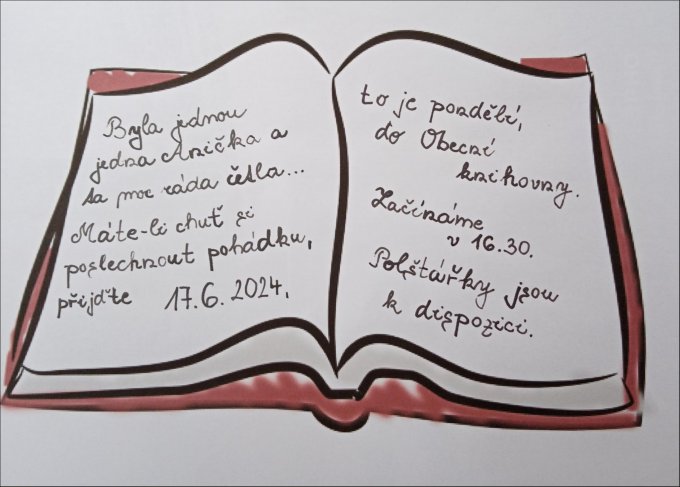 Byla jednou
jedna Anička a
ta moc ráda četla...
Máte-li chuť si
poslechnout pohádku,
přijďte 17.6. 2024,
to je pondělí,
do Obecní
knihovny.
Začínáme
v 16.30.
Polštářky jsou
k dispozici.